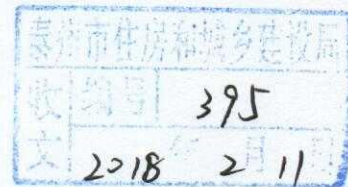 泰州市住房和城乡建设局
收 编号 395
文 2018 年 2 月 11 日